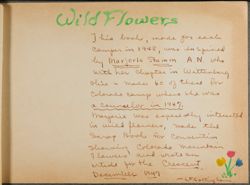 Wild Flowers
This book, made for each
camper in 1948, was inspired
by Marjorie Stamm A.N. who
with her Chapter in Wittenberg
Ohio made 60 of these for
Colorado camps where she was
a counselor in 1947.
Marjorie was especially interested
in wild flowers, made the
Scrap Book for Convention
showing Colorado mountain
flowers and wrote an
article for the Crescent
December 1947